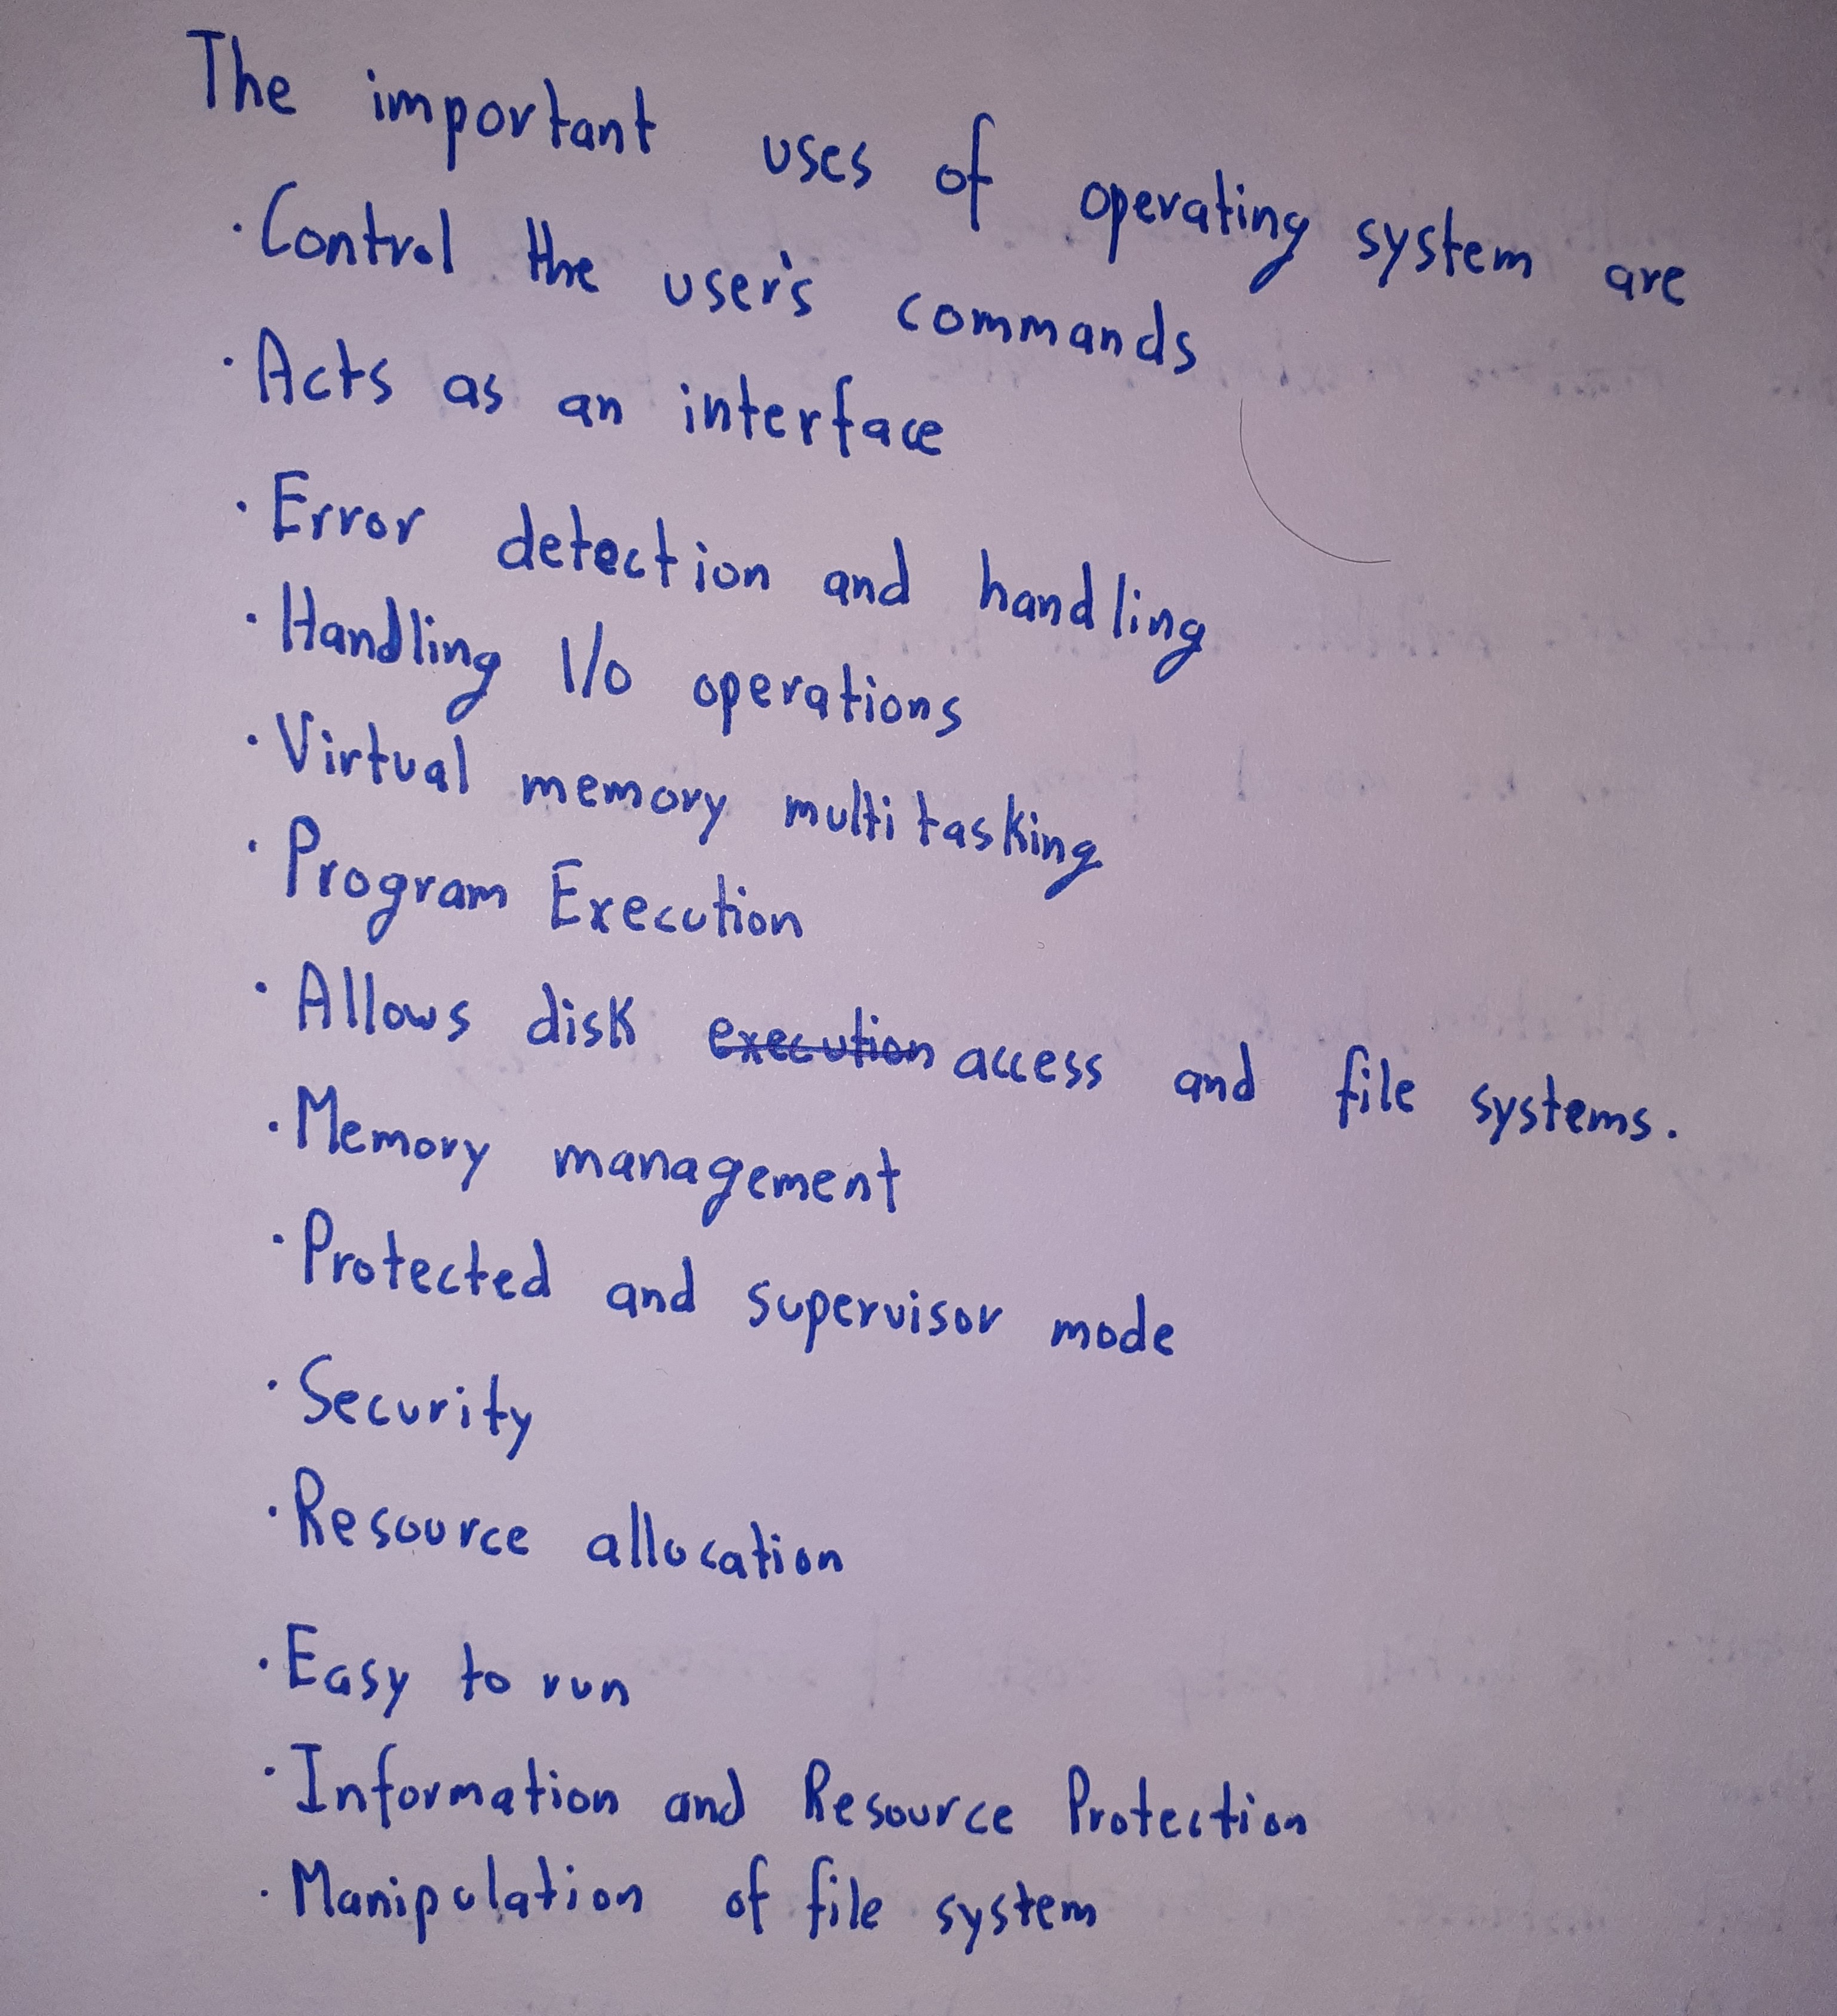 The important uses of operating system are
· Control the user's commands
· Acts as an interface
· Error detection and handling
· Handling I/o operations
· Virtual memory multitasking
· Program Execution
· Allows disk ~~execution~~ access and file systems.
· Memory management
· Protected and supervisor mode
· Security
· Resource allocation
· Easy to run
· Information and Resource Protection
· Manipulation of file system